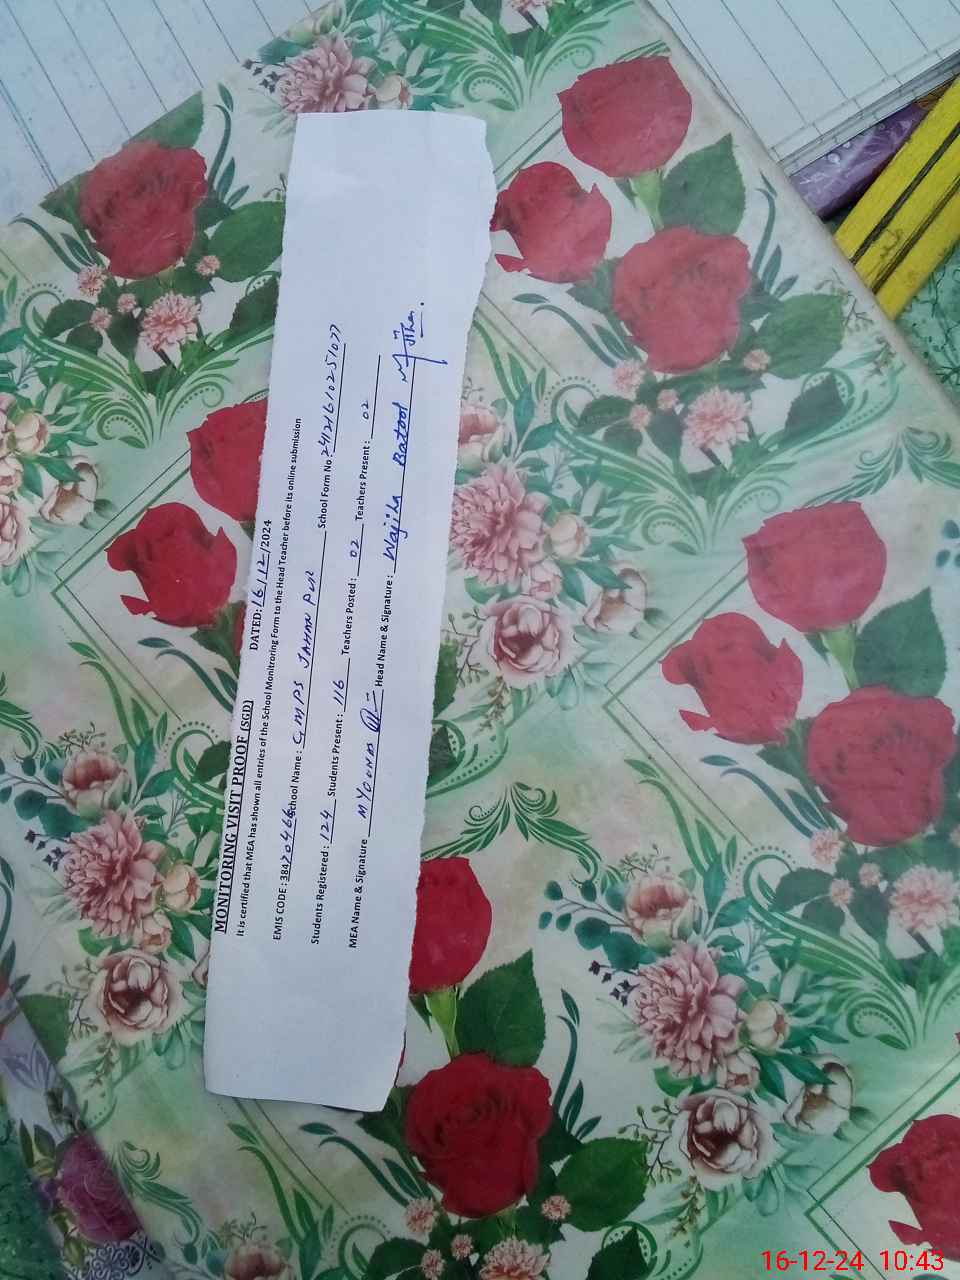 MONITORING VISIT PROOF (SGD) DATED: 16/12/2024
It is certified that MEA has shown all entries of the School Monitroring Form to the Head Teacher before its online submission
EMIS CODE : 38470466 School Name : GMPS JAHAN PUR School Form No : 24121610251077
Students Registered : 124 Students Present : 116 Teachers Posted : 02 Teachers Present : 02
MEA Name & Signature MYOUNAS Head Name & Signature : Wajiha Batool
16-12-24 10:43